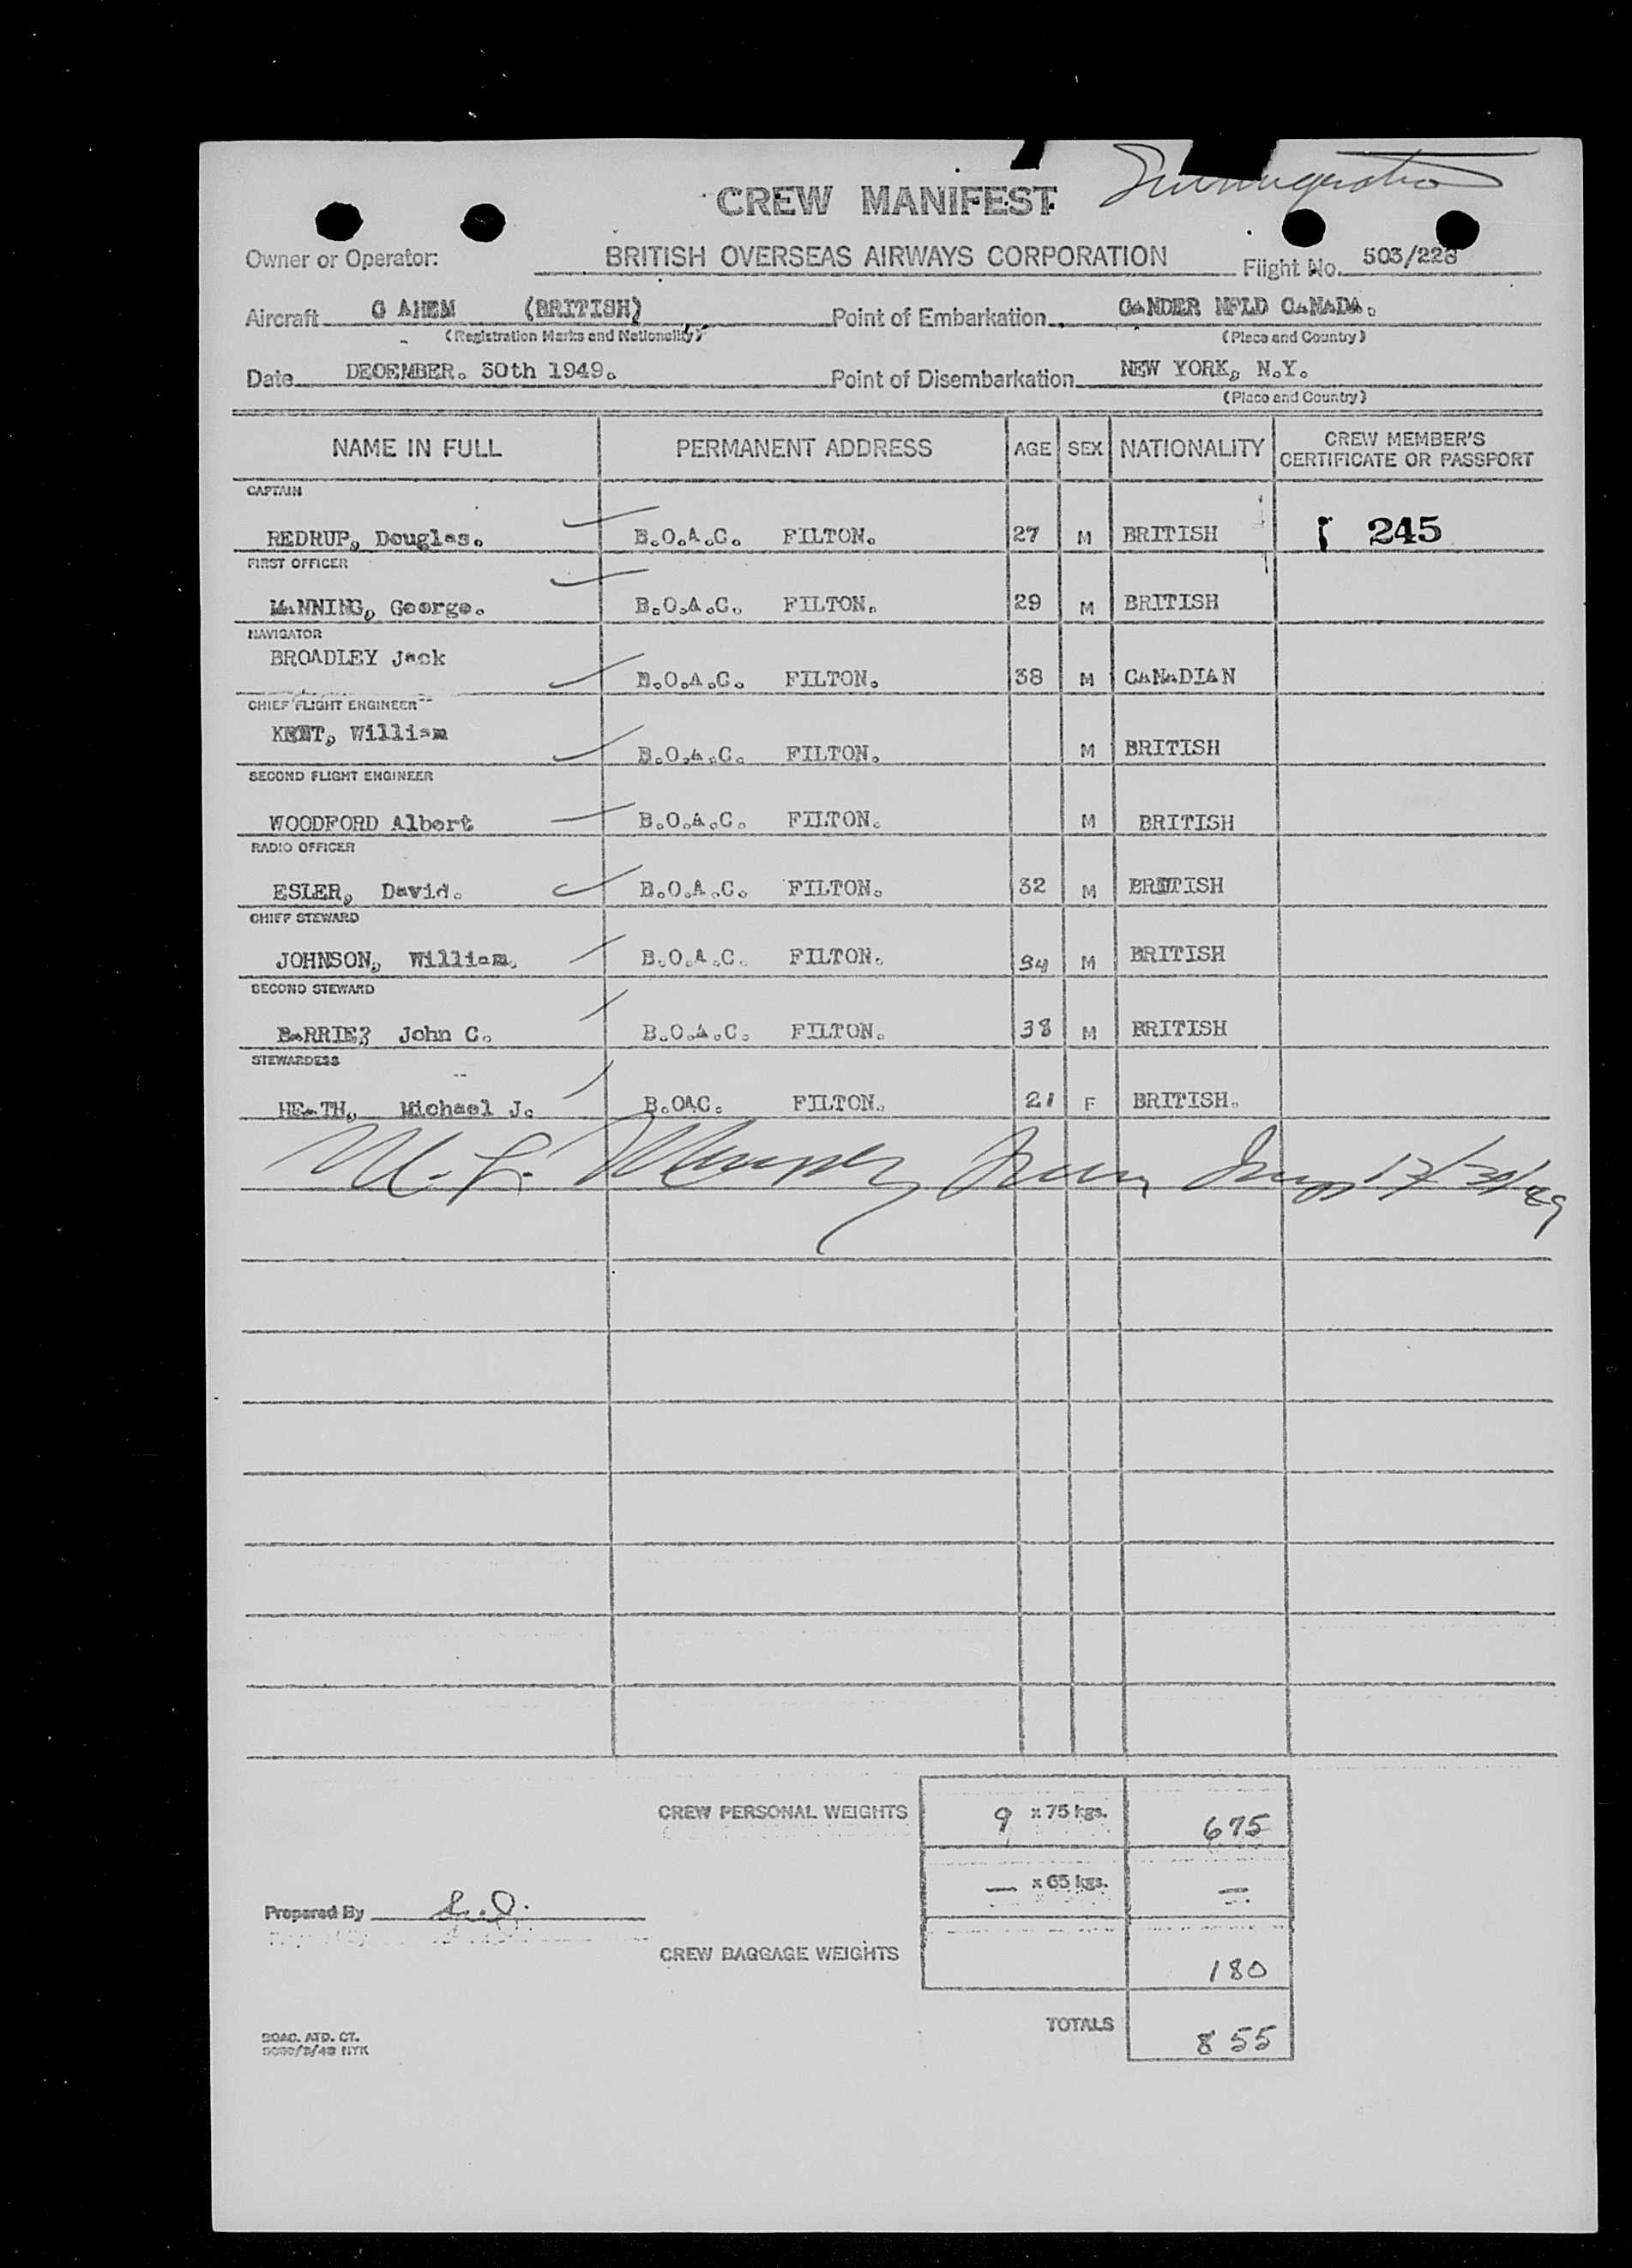 Immigration
CREW MANIFEST
Owner or Operator: BRITISH OVERSEAS AIRWAYS CORPORATION Flight No. 503/226
Aircraft G AHEM (BRITISH) Point of Embarkation GANDER NFLD CANADA.
(Registration Marks and Nationality) (Place and Country)
Date DECEMBER. 30th 1949. Point of Disembarkation NEW YORK, N.Y.
(Place and Country)
NAME IN FULL PERMANENT ADDRESS AGE SEX NATIONALITY CREW MEMBER'S CERTIFICATE OR PASSPORT
CAPTAIN
REDRUP, Douglas. B.O.A.C. FILTON. 27 M BRITISH 245
FIRST OFFICER
MANNING, George. B.O.A.C. FILTON. 29 M BRITISH
NAVIGATOR
BROADLEY Jack B.O.A.C. FILTON. 38 M CANADIAN
CHIEF FLIGHT ENGINEER
KENT, William B.O.A.C. FILTON. M BRITISH
SECOND FLIGHT ENGINEER
WOODFORD Albert B.O.A.C. FILTON. M BRITISH
RADIO OFFICER
ESLER, David. B.O.A.C. FILTON. 32 M BRITISH
CHIEF STEWARD
JOHNSON, William. B.O.A.C. FILTON. 34 M BRITISH
SECOND STEWARD
BARRIE, John C. B.O.A.C. FILTON. 38 M BRITISH
STEWARDESS
HEATH, Michael J. B.OAC. FILTON. 21 F BRITISH.
12/30/49
CREW PERSONAL WEIGHTS 9 x 75 kgs. 675
— x 65 kgs. —
Prepared By
CREW BAGGAGE WEIGHTS 180
TOTALS 855
BOAC. ATD. CT.